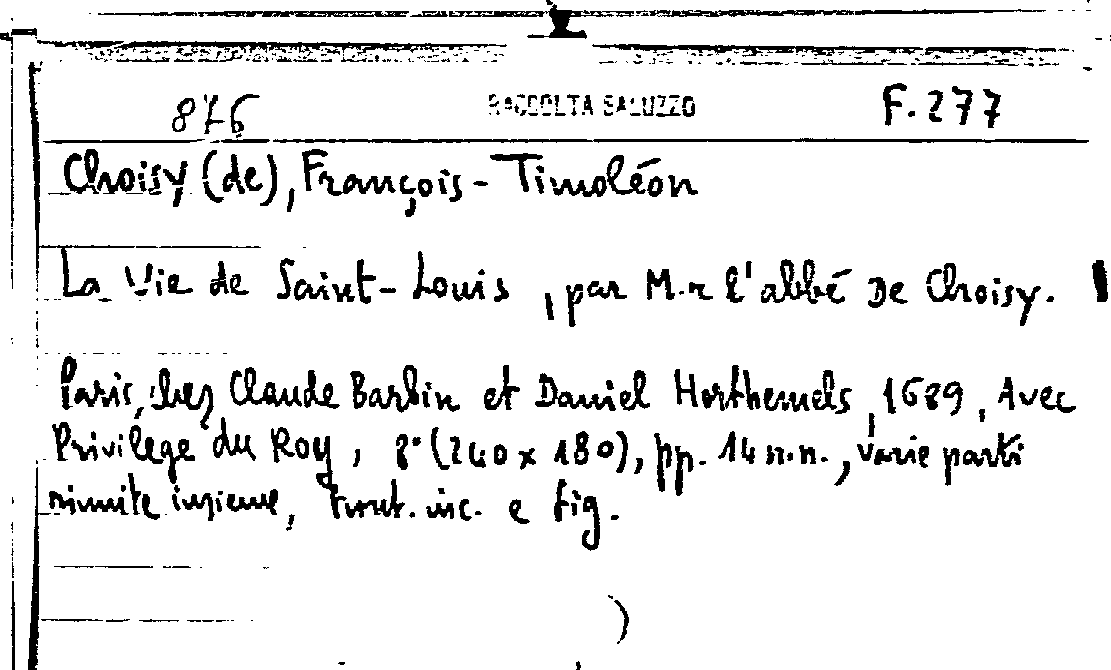 876 RACCOLTA SALUZZO F. 277
Choisy (de), François - Timoléon
La Vie de Saint-Louis, par M.r l'abbé De Choisy.
Paris, chez Claude Barbin et Daniel Horthemels, 1689, Avec
Privilege du Roy, 8° (240 x 180), pp. 14 n.n., varie parti
riunite insieme, front. inc. e fig.
)